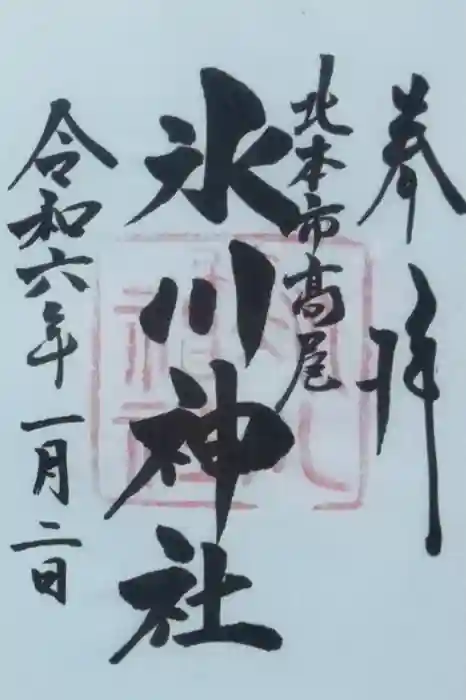 奉拝
北本市高尾
氷川神社
令和六年一月二日